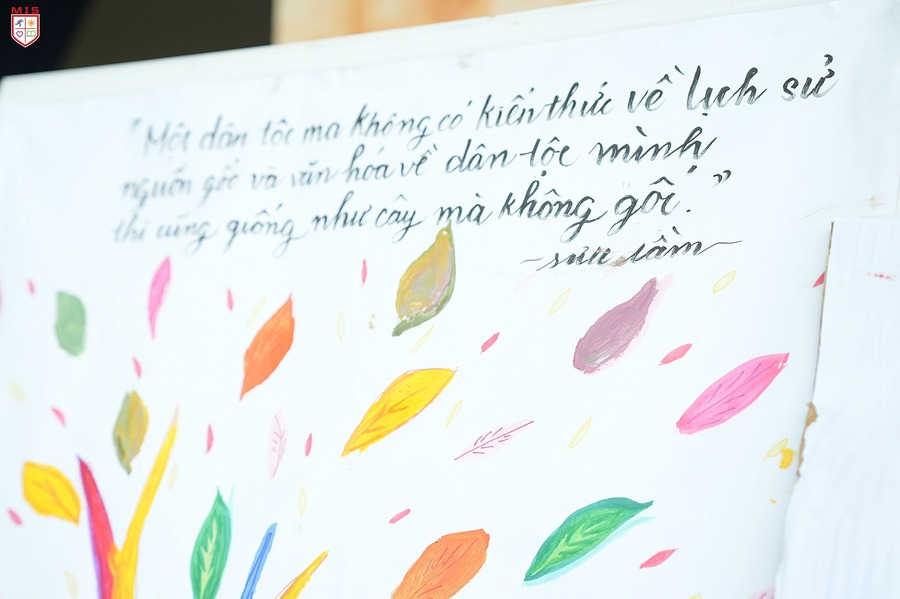 MIS
"Một dân tộc mà không có kiến thức về lịch sử
nguồn gốc và văn hóa về dân tộc mình
thì cũng giống như cây mà không gốc."
~sưu tầm~